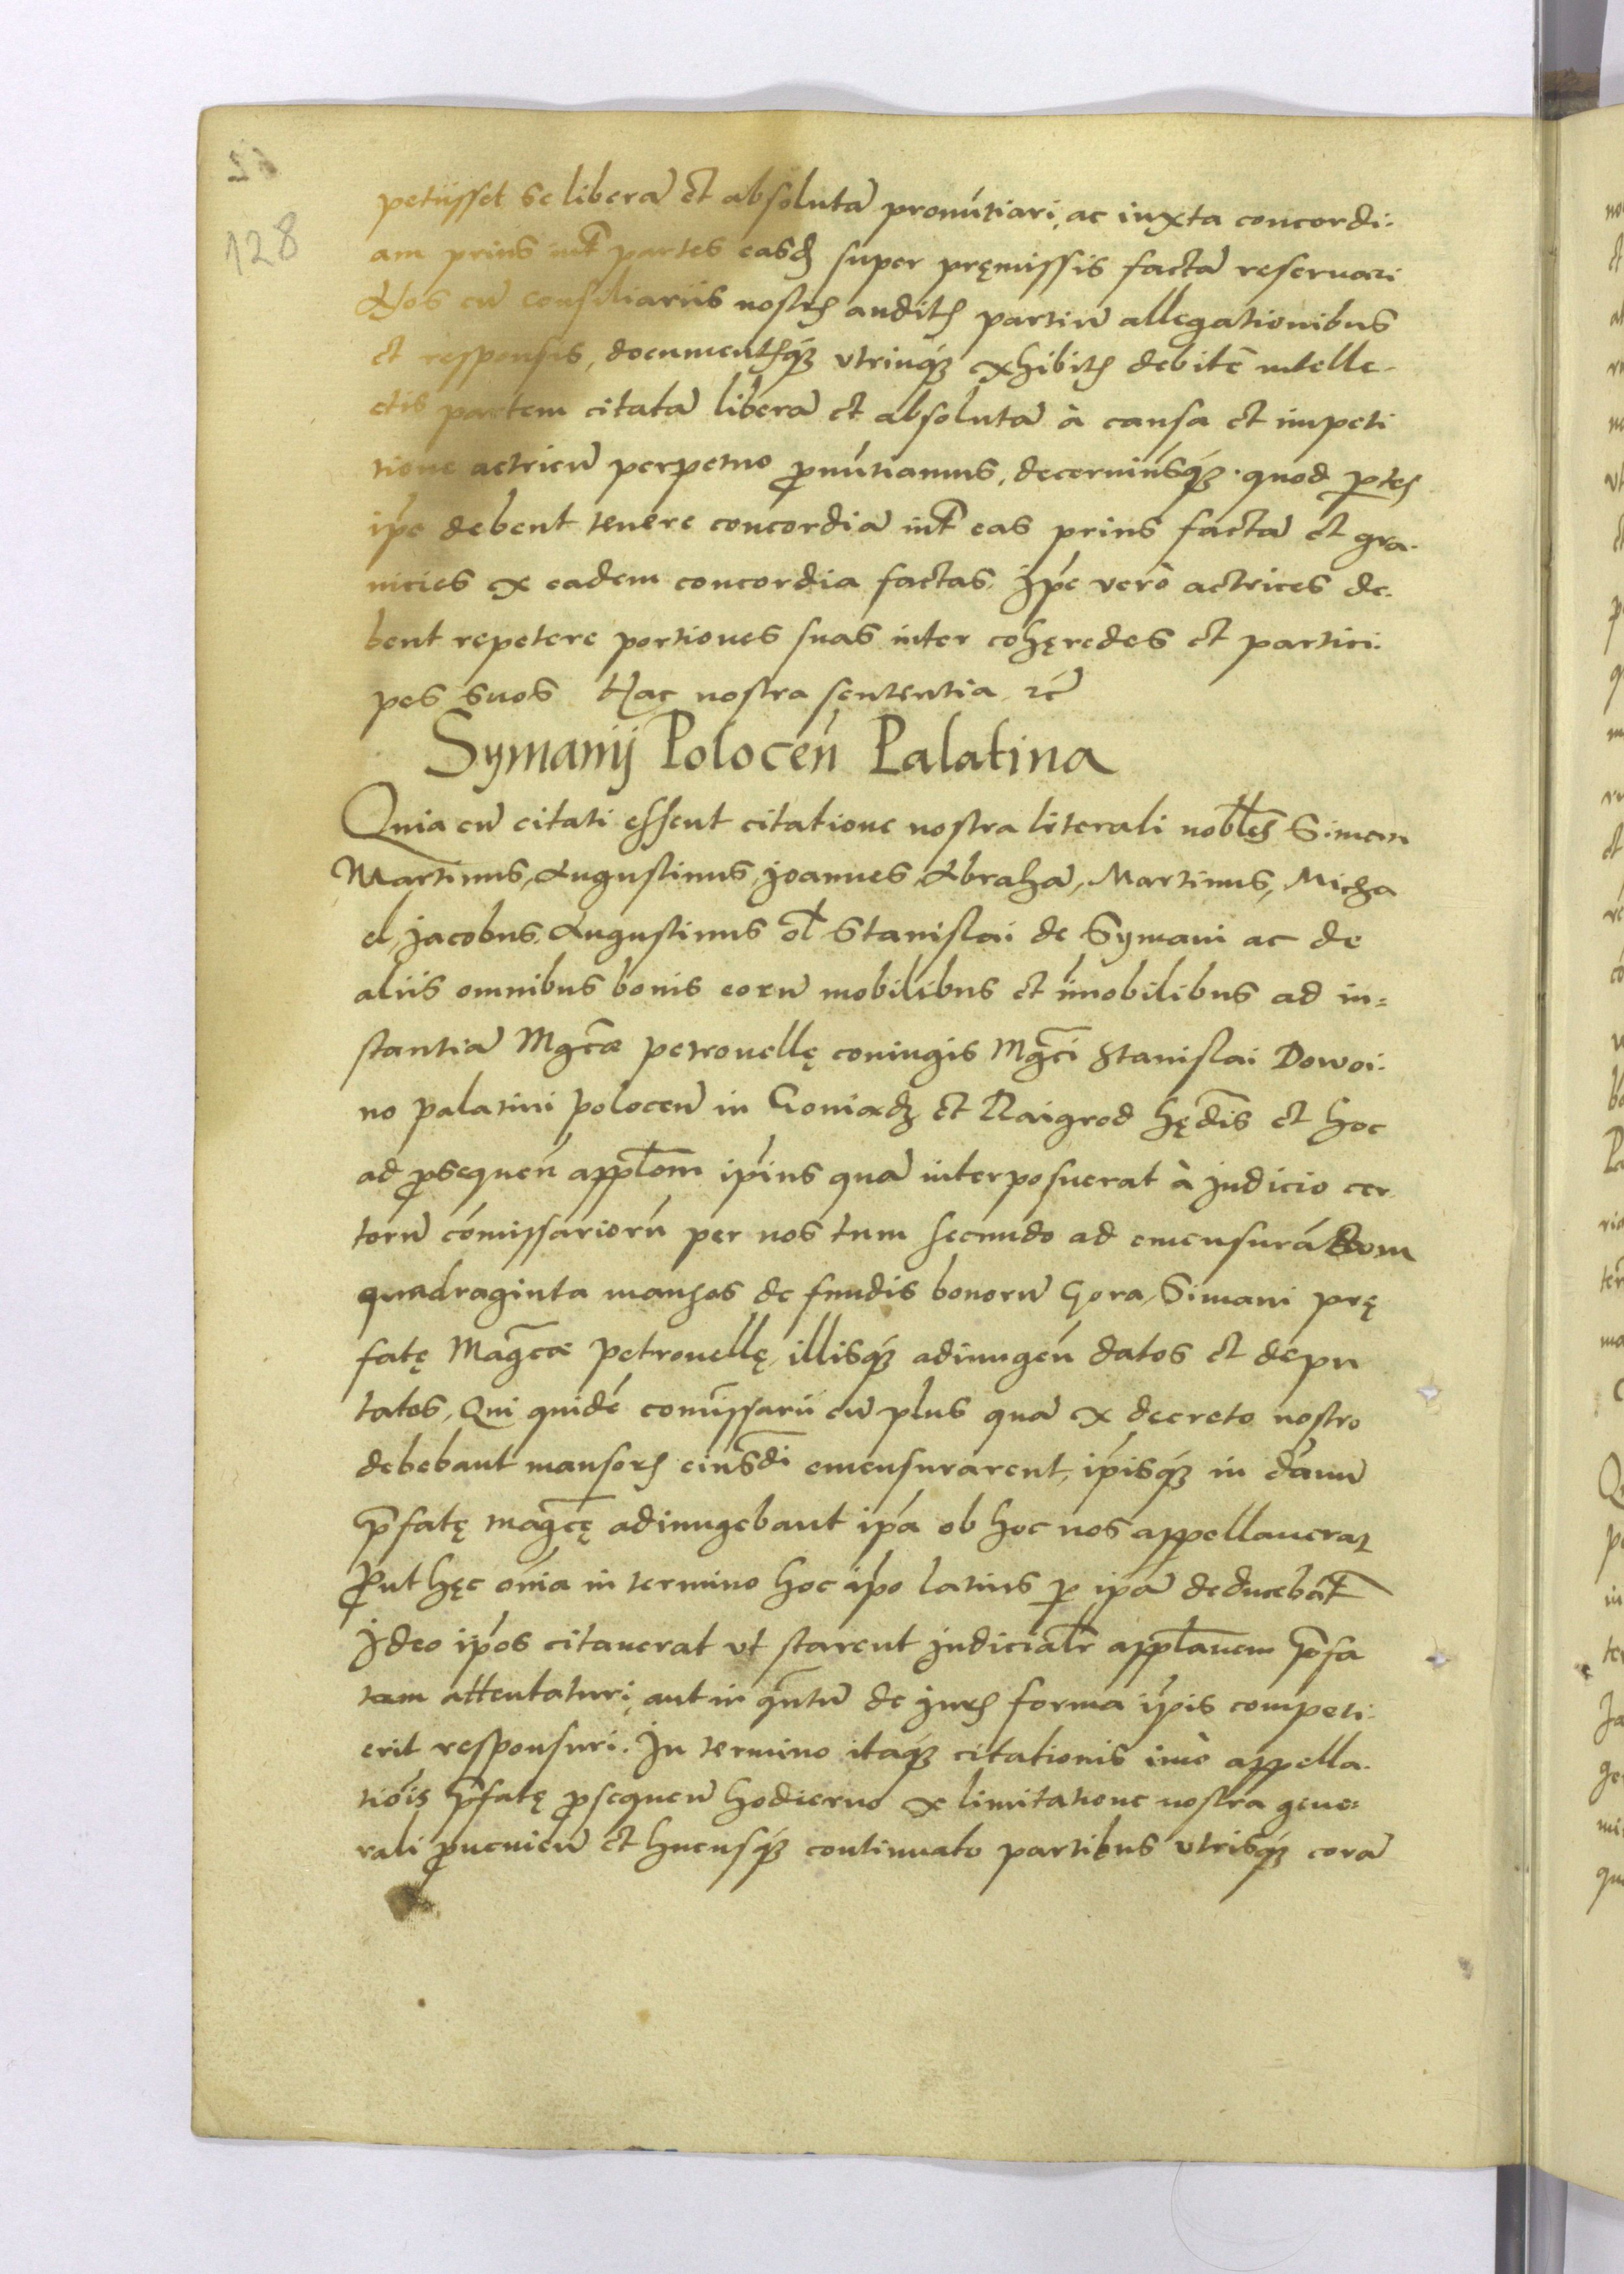 128
petiisset se liberã et absolutã pronũtiari, ac iuxta concordi-
am prius int̃ partes easd super pręmissis factã reseruari
Nos cũ consiliariis nostris auditis partiũ allegationibus
et responsis, documentisq3 vtrinq3 exhibitis debitè intelle-
ctis partem citatã liberã et absolutã à causa et impeti
tione actricũ perpetuo ꝓnũtiamus, decernimusq3 quod ꝑtes
ip̃e debent tenere concordiã int̃ eas prius factã et gra-
nicies ex eadem concordia factas. Ip̃e verò actrices de-
bent repetere portiones suas inter cohęredes et partici-
pes suos Hac nostra sententia rc̃
Symanij Polocen̄ Palatina
Quia cũ citati essent citatione nostra literali nobl̃es Simem
Martinus, Augustinus, Joannes, Abrahã, Martinus, Micha
el, Jacobus, Augustinus ol̃ Stanislai de Symani ac de
aliis omnibus bonis eorũ mobilibus et im̃obilibus ad in=
stantiã Mgc̃æ Petronellę coniugis Mgc̃i Stanislai Dowoi-
no palatini polocen̄ in Goniadz et Raigrod hęd̃is et hoc
ad ꝓsequen̄ appl̃om ip̃ius quã interposuerat à judicio cer
torũ com̃issariorũ per nos tum secundo ad emensurãdom
quadraginta mansos de fundis bonorũ Gora, Simani prę
fatę Magc̃æ Petronellę, illisq3 adiungen̄ datos et depu
tatos, Qui quidẽ com̃issarii cũ plus quã ex decreto nostro
debebant mansos eiusd̃i emensurarent, ip̃isq3 in dãnũ
p̃fatę magc̃ę adiungebant ip̃a ob hoc nos appellauerat
ꝓut hęc om̃ia in termino hoc ip̃o latius ꝑ ip̃ã deducebat̃
Ideo ip̃os citauerat vt starent judicialr̃ appl̃auem p̃fa
tam attentaturi, aut in q̃ntũ de juris forma ip̃is competi-
erit responsuri. In termino itaq3 citationis imò appella-
tiõis p̃fatę ꝓsequen̄ hodierno ex limitatione nostra gene=
rali ꝓuenien̄ et hucusq3 continuato partibus vtrisq3 corã